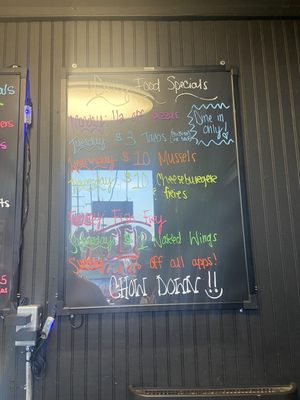 Daily Food Specials
Monday: 1/2 off pizzas
Tuesday: $3 Tacos
Dine in
only!
Wednesday: $10 Mussels
Thursday: $10 Cheeseburger
& fries
Friday: Fish Fry
Saturday: Naked Wings
Sunday: off all apps!
CHOW DOWN!!